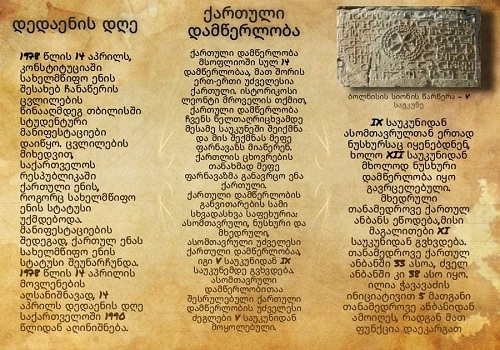 დედაენის დღე
1978 წლის 14 აპრილს,
კონსტიტუციაში
სახელმწიფო ენის
შესახებ ჩანაწერის
ცვლილების
წინააღმდეგ თბილისში
სტუდენტური
მანიფესტაციები
დაიწყო. ცვლილების
მიხედვით,
საქართველოს
რესპუბლიკაში
ქართული ენის,
როგორც სახელმწიფო
ენის სტატუსი
უქმდებოდა.
მანიფესტაციების
შედეგად, ქართულ ენას
სახელმწიფო ენის
სტატუსი შეუნარჩუნდა.
1978 წლის 14 აპრილის
მოვლენების
აღსანიშნავად, 14
აპრილს დედაენის დღე
საქართველოში 1990
წლიდან აღინიშნება.
ქართული
დამწერლობა
ქართული დამწერლობა
მსოფლიოში სულ 14
დამწერლობაა, მათ შორის
ერთ-ერთი უძველესია
ქართული. ისტორიკოსი
ლეონტი მროველის თქმით,
ქართული დამწერლობა
ჩვენს წელთაღრიცხვამდე
მესამე საუკუნეში შეიქმნა
და მის შექმნას მეფე
ფარნავაზს მიაწერენ.
ქართლის ცხოვრების
თანახმად მეფე
ფარნავაზმა განავრცო ენა
ქართული.
ქართული დამწერლობის
განვითარების სამი
სხვადასხვა საფეხურია:
ასომთავრული, ნუსხური და
მხედრული,
ასომთავრული უძველესი
ქართული დამწერლობაა,
იგი V საუკუნიდან IX
საუკუნემდე გვხდება.
ასომთავრული
დამწერლობითაა
შესრულებული ქართული
დამწერლობის უძველესი
ძეგლები V საუკუნიდან
მოყოლებული.
ბოლნისის სიონის წარწერა - V
საუკუნე
IX საუკუნიდან
ასომთავრულთან ერთად
ნუსხურსაც იყენებდნენ,
ხოლო XII საუკუნიდან
მხოლოდ ნუსხური
დამწერლობა იყო
გავრცელებული.
მხედრული
თანამედროვე ქართულ
ანბანს ეწოდება,მისი
მაგალითები XI
საუკუნიდან გვხდება.
თანამედროვე ქართულ
ანბანში 33 ასოა, ძველ
ანბანში კი 38 ასო იყო.
ილია ჭავჭავაძის
ინიციატივით 5 მათგანი
თანამედროვე ანბანიდან
ამოიღეს, რადგან მათ
ფუნქცია დაეკარგათ